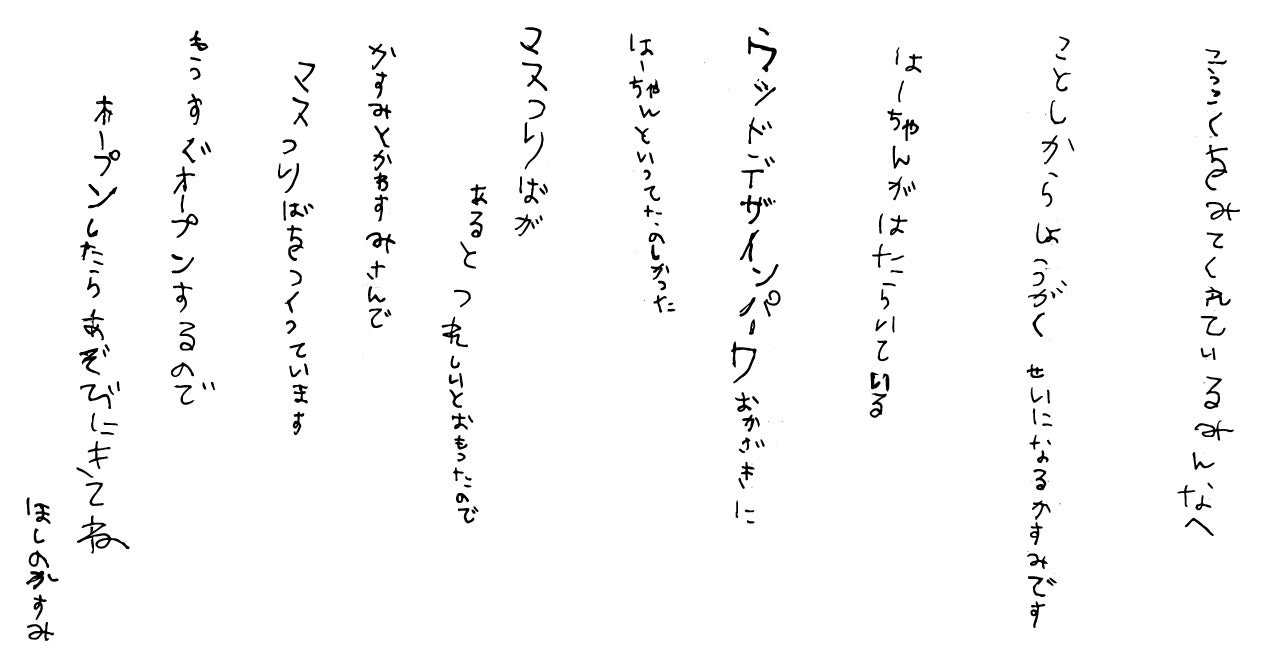 こうこくをみてくれているみんなへ
ことしからしょうがくせいになるかすみです
はーちゃんがはたらいている
ウッドデザインパークおかざきに
はーちゃんといってたのしかった
マスつりばが
あると うれしいとおもったので
かすみとかわすみさんで
マスつりばをつくっています
もうすぐオープンするので
オープンしたらあそびにきてね
ほしのかすみ